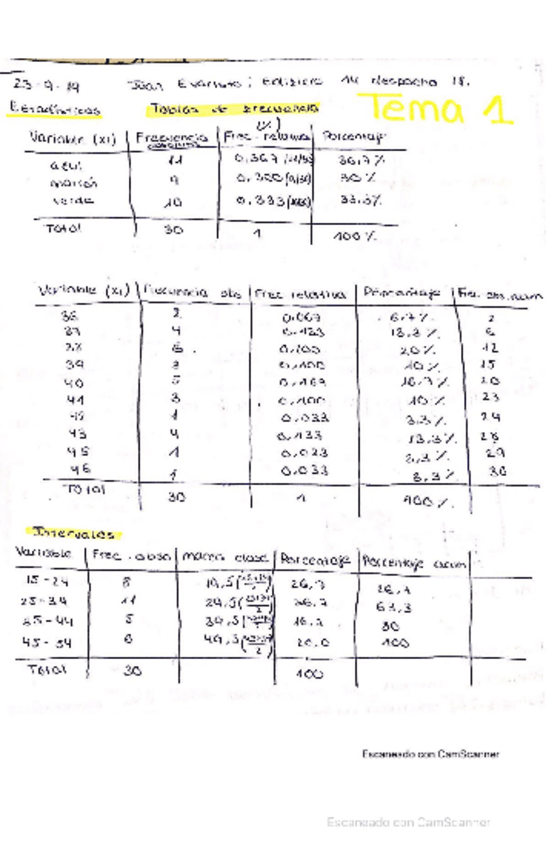 23-9-19 Juan Evaristo; Edificio 14 despacho 18.
Estadísticas Tablas de frecuencia Tema 1
(%)
Variable (xi) Frecuencia absoluta Frec. relativa Porcentaje
azul 11 0,367 (11/30) 36,7 %
marrón 9 0,300 (9/30) 30 %
verde 10 0,333 (10/30) 33,3%
Total 30 1 100 %
Variable (xi) Frecuencia abs Frec relativa Porcentaje Frec. abs. acum
36 2 0,067 6,7 % 2
37 4 0,133 13,3 % 6
38 6 0,200 20 % 12
39 3 0,100 10 % 15
40 5 0,169 16,7 % 20
41 3 0,100 10 % 23
42 1 0,033 3,3 % 24
43 4 0,133 13,3 % 28
45 1 0,033 3,3 % 29
46 1 0,033 3,3 % 30
Total 30 1 100 %
Intervalos
Variable Frec. absol marca clase Porcentaje Porcentaje acum
15-24 8 19,5 26,7 26,7
25-34 11 29,5 36,7 63,3
35-44 5 39,5 16,7 80
45-54 6 49,5 20,0 100
Total 30 100
Escaneado con CamScanner
Escaneado con CamScanner